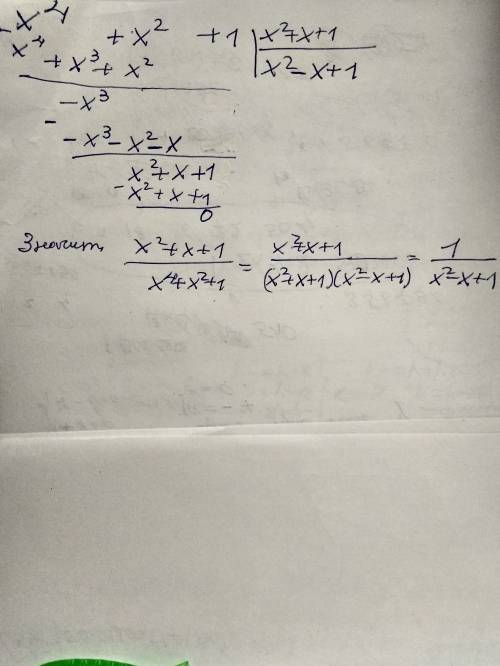 - x^4 + x^2 + 1 | x^2+x+1
x^4 + x^3 + x^2 | x^2-x+1
- -x^3
-x^3-x^2-x
x^2+x+1
- x^2+x+1
0
Значит, (x^2+x+1)/(x^4+x^2+1) = (x^2+x+1)/((x^2+x+1)(x^2-x+1)) = 1/(x^2-x+1)